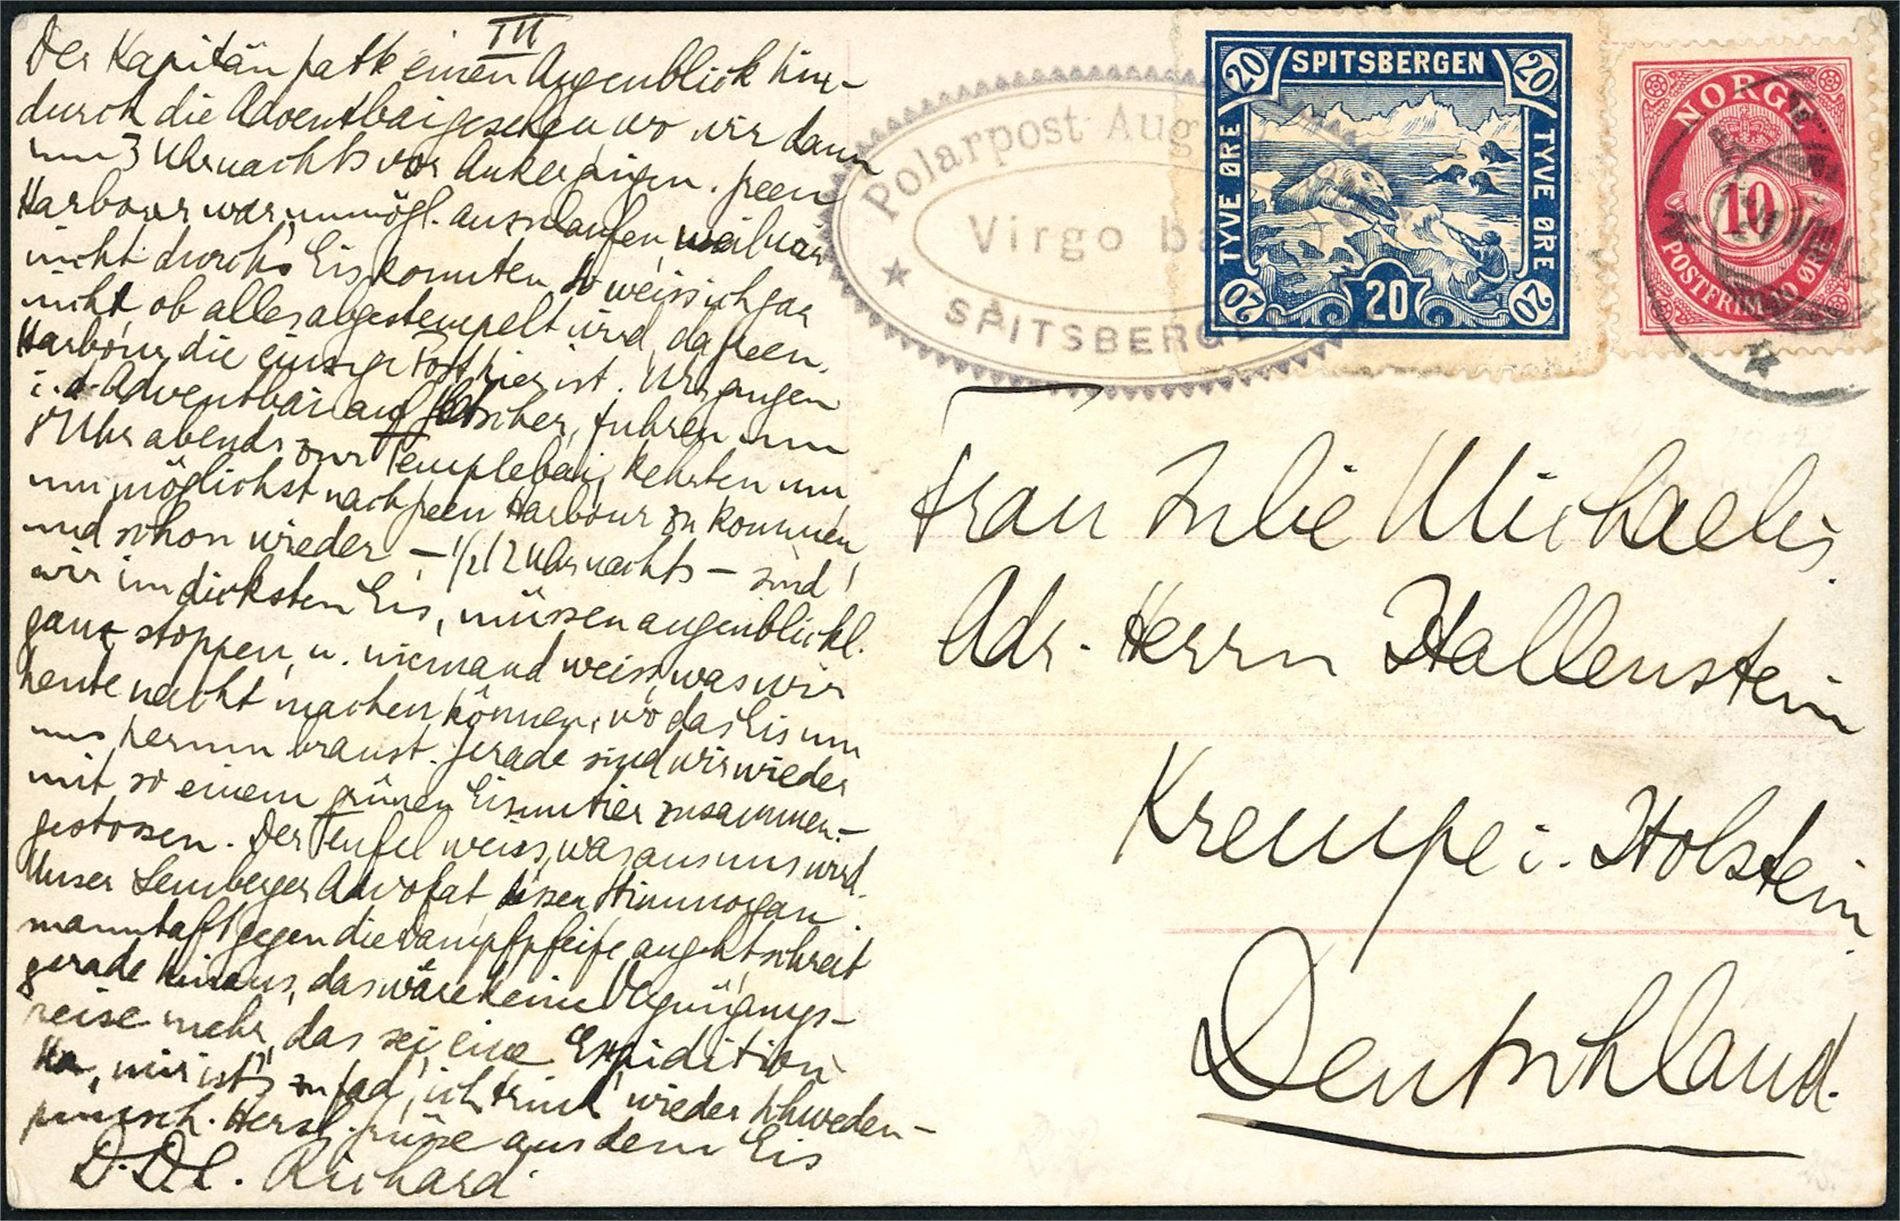 III
Der Kapitän hatte einen Augenblick hin-
durch die Adventbai gesehen, wo wir dann
um 3 Uhr nachts vor Anker gigen. Green
Harbour war unmögl. anzulaufen, weil wir
nicht durch's Eis konnten, so weiss ich gar
nicht ob alles abgestempelt wird, da Green
Harbour die einzige Post hier ist. Wir gingen
i. d. Adventbai auf Gletscher, fuhren um
8 Uhr abends zur Templebai, kehrten um
um möglichst nach Green Harbour zu kommen,
und schon wieder – 1/2 12 Uhr nachts – sind
wir im dicksten Eis, müssen augenblickl.
ganz stoppen, u. niemand weiss, was wir
heute nacht machen können, wo das Eis um
uns herum braust. Gerade sind wir wieder
mit so einem grünen Eisuntier zusammen-
gestossen. Der Teufel weiss, was aus uns wird.
Unser Lemberger Advokat, dessen Stimmorgan
mannhaft gegen die Dampfpfeife angeht, schreit
gerade hinaus, das wäre keine Vergnügungs-
reise mehr, das sei eine Expidition
Na, mir ist's zu fad, ich trink' wieder Schweden-
punsch. Herzl. Grüsse aus dem Eis
Richard.
Polarpost Aug
Virgo ba
SPITSBERGE
SPITSBERGEN
20
20
TYVE ØRE
TYVE ØRE
20
20
20
NORGE
10
POSTFRIM. 10 ØRE
Frau Julie Michaelis.
Adr. Herrn Hallenstein
Krempe i. Holstein.
Deutschland.